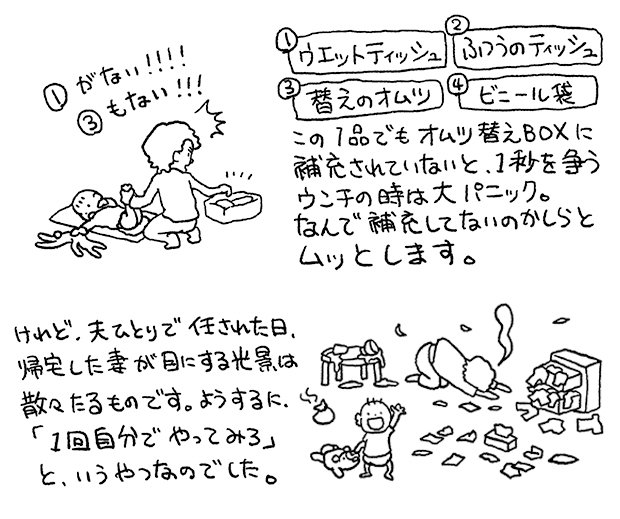 ①がない!!!!
③もない!!!
①ウエットティッシュ
②ふつうのティッシュ
③替えのオムツ
④ビニール袋
この1品でもオムツ替えBOXに
補充されていないと、1秒を争う
ウンチの時は大パニック。
なんで補充してないのかしらと
ムッとします。
けれど、夫ひとりで任された日、
帰宅した妻が目にする光景は
散々たるものです。ようするに、
「1回自分でやってみろ」
と、いうやつなのでした。